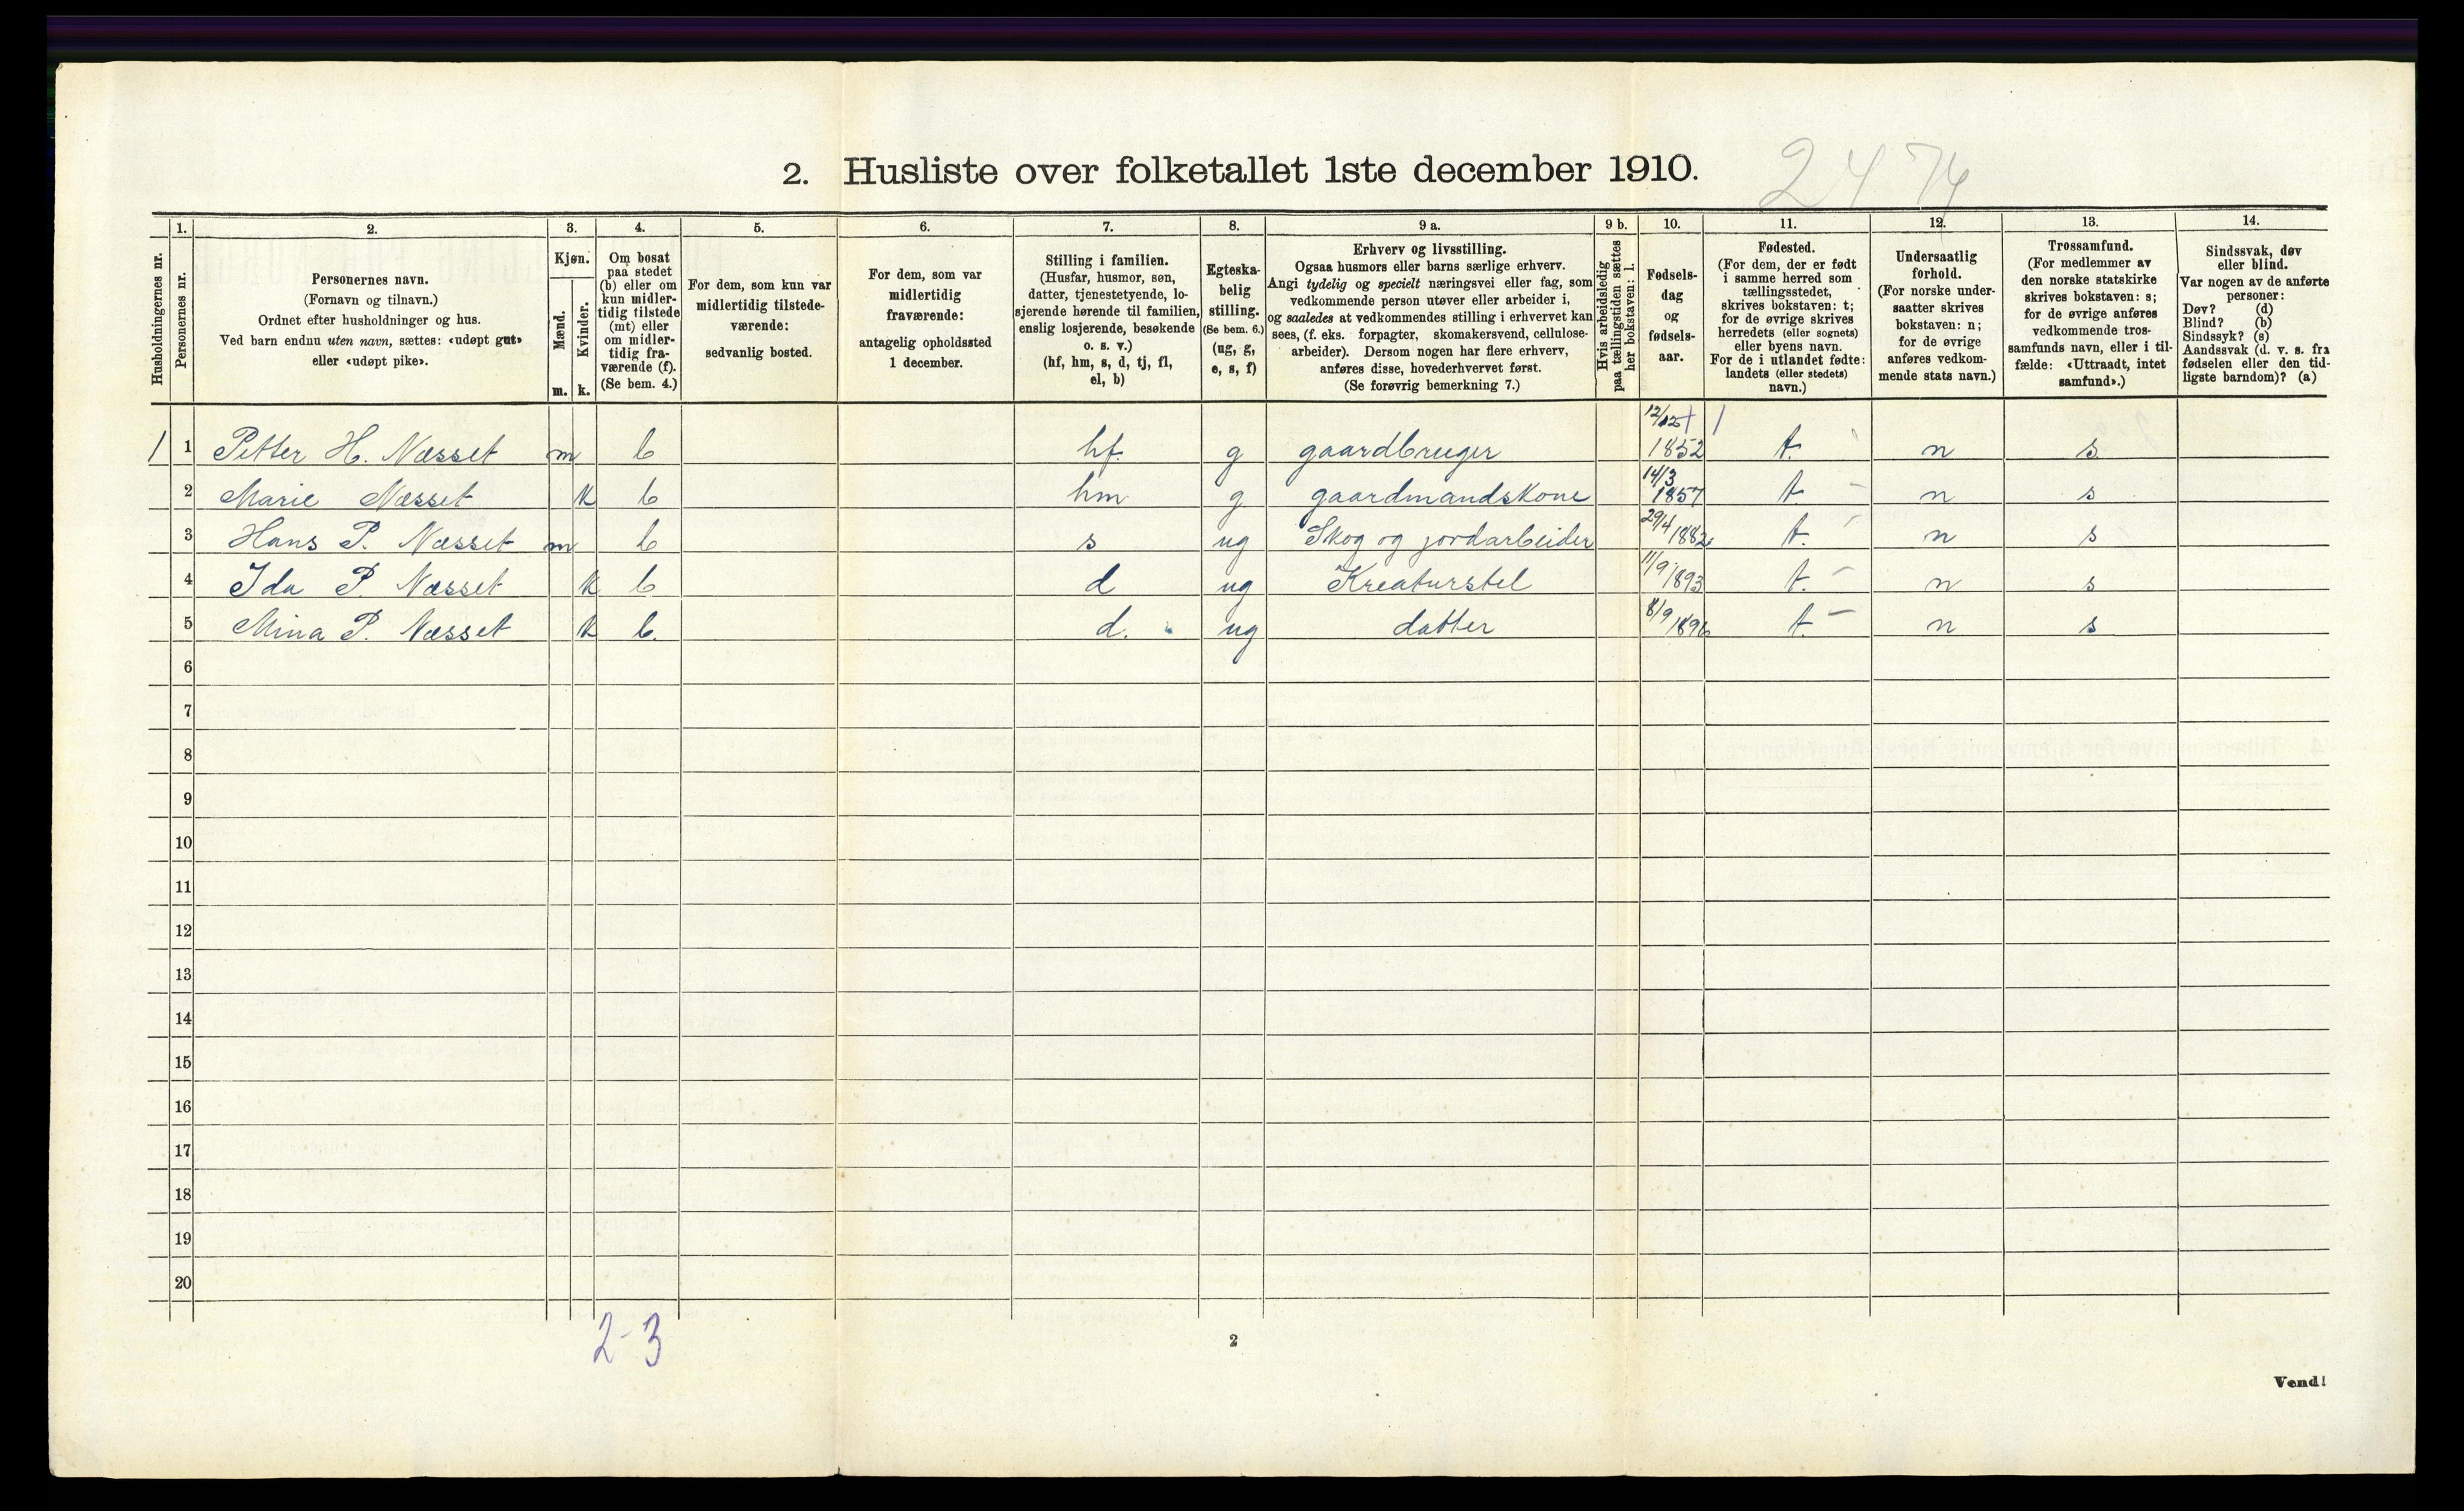 2. Husliste over folketallet 1ste december 1910.
2474
1. 2. 3. 4. 5. 6. 7. 8. 9 a. 9 b. 10. 11. 12. 13. 14.
Husholdningernes nr.
Personernes nr.
Personernes navn.
(Fornavn og tilnavn.)
Ordnet efter husholdninger og hus.
Ved barn endnu uten navn, sættes: «udøpt gut»
eller «udøpt pike».
Kjøn.
Mænd.
Kvinder.
m. k.
Om bosat
paa stedet
(b) eller om
kun midler-
tidig tilstede
(mt) eller
om midler-
tidig fra-
værende (f).
(Se bem. 4.)
For dem, som kun var
midlertidig tilstede-
værende:
sedvanlig bosted.
For dem, som var
midlertidig
fraværende:
antagelig opholdssted
1 december.
Stilling i familien.
(Husfar, husmor, søn,
datter, tjenestetyende, lo-
sjerende hørende til familien,
enslig losjerende, besøkende
o. s. v.)
(hf, hm, s, d, tj, fl,
el, b)
Egteska-
belig
stilling.
(Se bem. 6.)
(ug, g,
e, s, f)
Erhverv og livsstilling.
Ogsaa husmors eller barns særlige erhverv.
Angi tydelig og specielt næringsvei eller fag, som
vedkommende person utøver eller arbeider i,
og saaledes at vedkommendes stilling i erhvervet kan
sees, (f. eks. forpagter, skomakersvend, cellulose-
arbeider). Dersom nogen har flere erhverv,
anføres disse, hovederhvervet først.
(Se forøvrig bemerkning 7.)
Hvis arbeidsledig
paa tællingstiden sættes
her bokstaven: l.
Fødsels-
dag
og
fødsels-
aar.
Fødested.
(For dem, der er født
i samme herred som
tællingsstedet,
skrives bokstaven: t;
for de øvrige skrives
herredets (eller sognets)
eller byens navn.
For de i utlandet fødte:
landets (eller stedets)
navn.)
Undersaatlig
forhold.
(For norske under-
saatter skrives
bokstaven: n;
for de øvrige
anføres vedkom-
mende stats navn.)
Trossamfund.
(For medlemmer av
den norske statskirke
skrives bokstaven: s;
for de øvrige anføres
vedkommende tros-
samfunds navn, eller i til-
fælde: «Uttraadt, intet
samfund».)
Sindssvak, døv
eller blind.
Var nogen av de anførte
personer:
Døv? (d)
Blind? (b)
Sindssyk? (s)
Aandssvak (d. v. s. fra
fødselen eller den tid-
ligste barndom)? (a)
1 1 Petter H. Næsset m b hf. g gaardbruger 12/12 1852 t. n s
2 Marie Næsset k b hm g gaardmandskone 14/3 1857 t. n s
3 Hans P. Næsset m b s ug Skog og jordarbeider 29/4 1882 t. n s
4 Ida P. Næsset k b d ug Kreaturstel 11/9 1893 t. n s
5 Mina P. Næsset k b. d. ug datter 8/9 1896 t. n s
6
7
8
9
10
11
12
13
14
15
16
17
18
19
20
2-3
2
Vend!